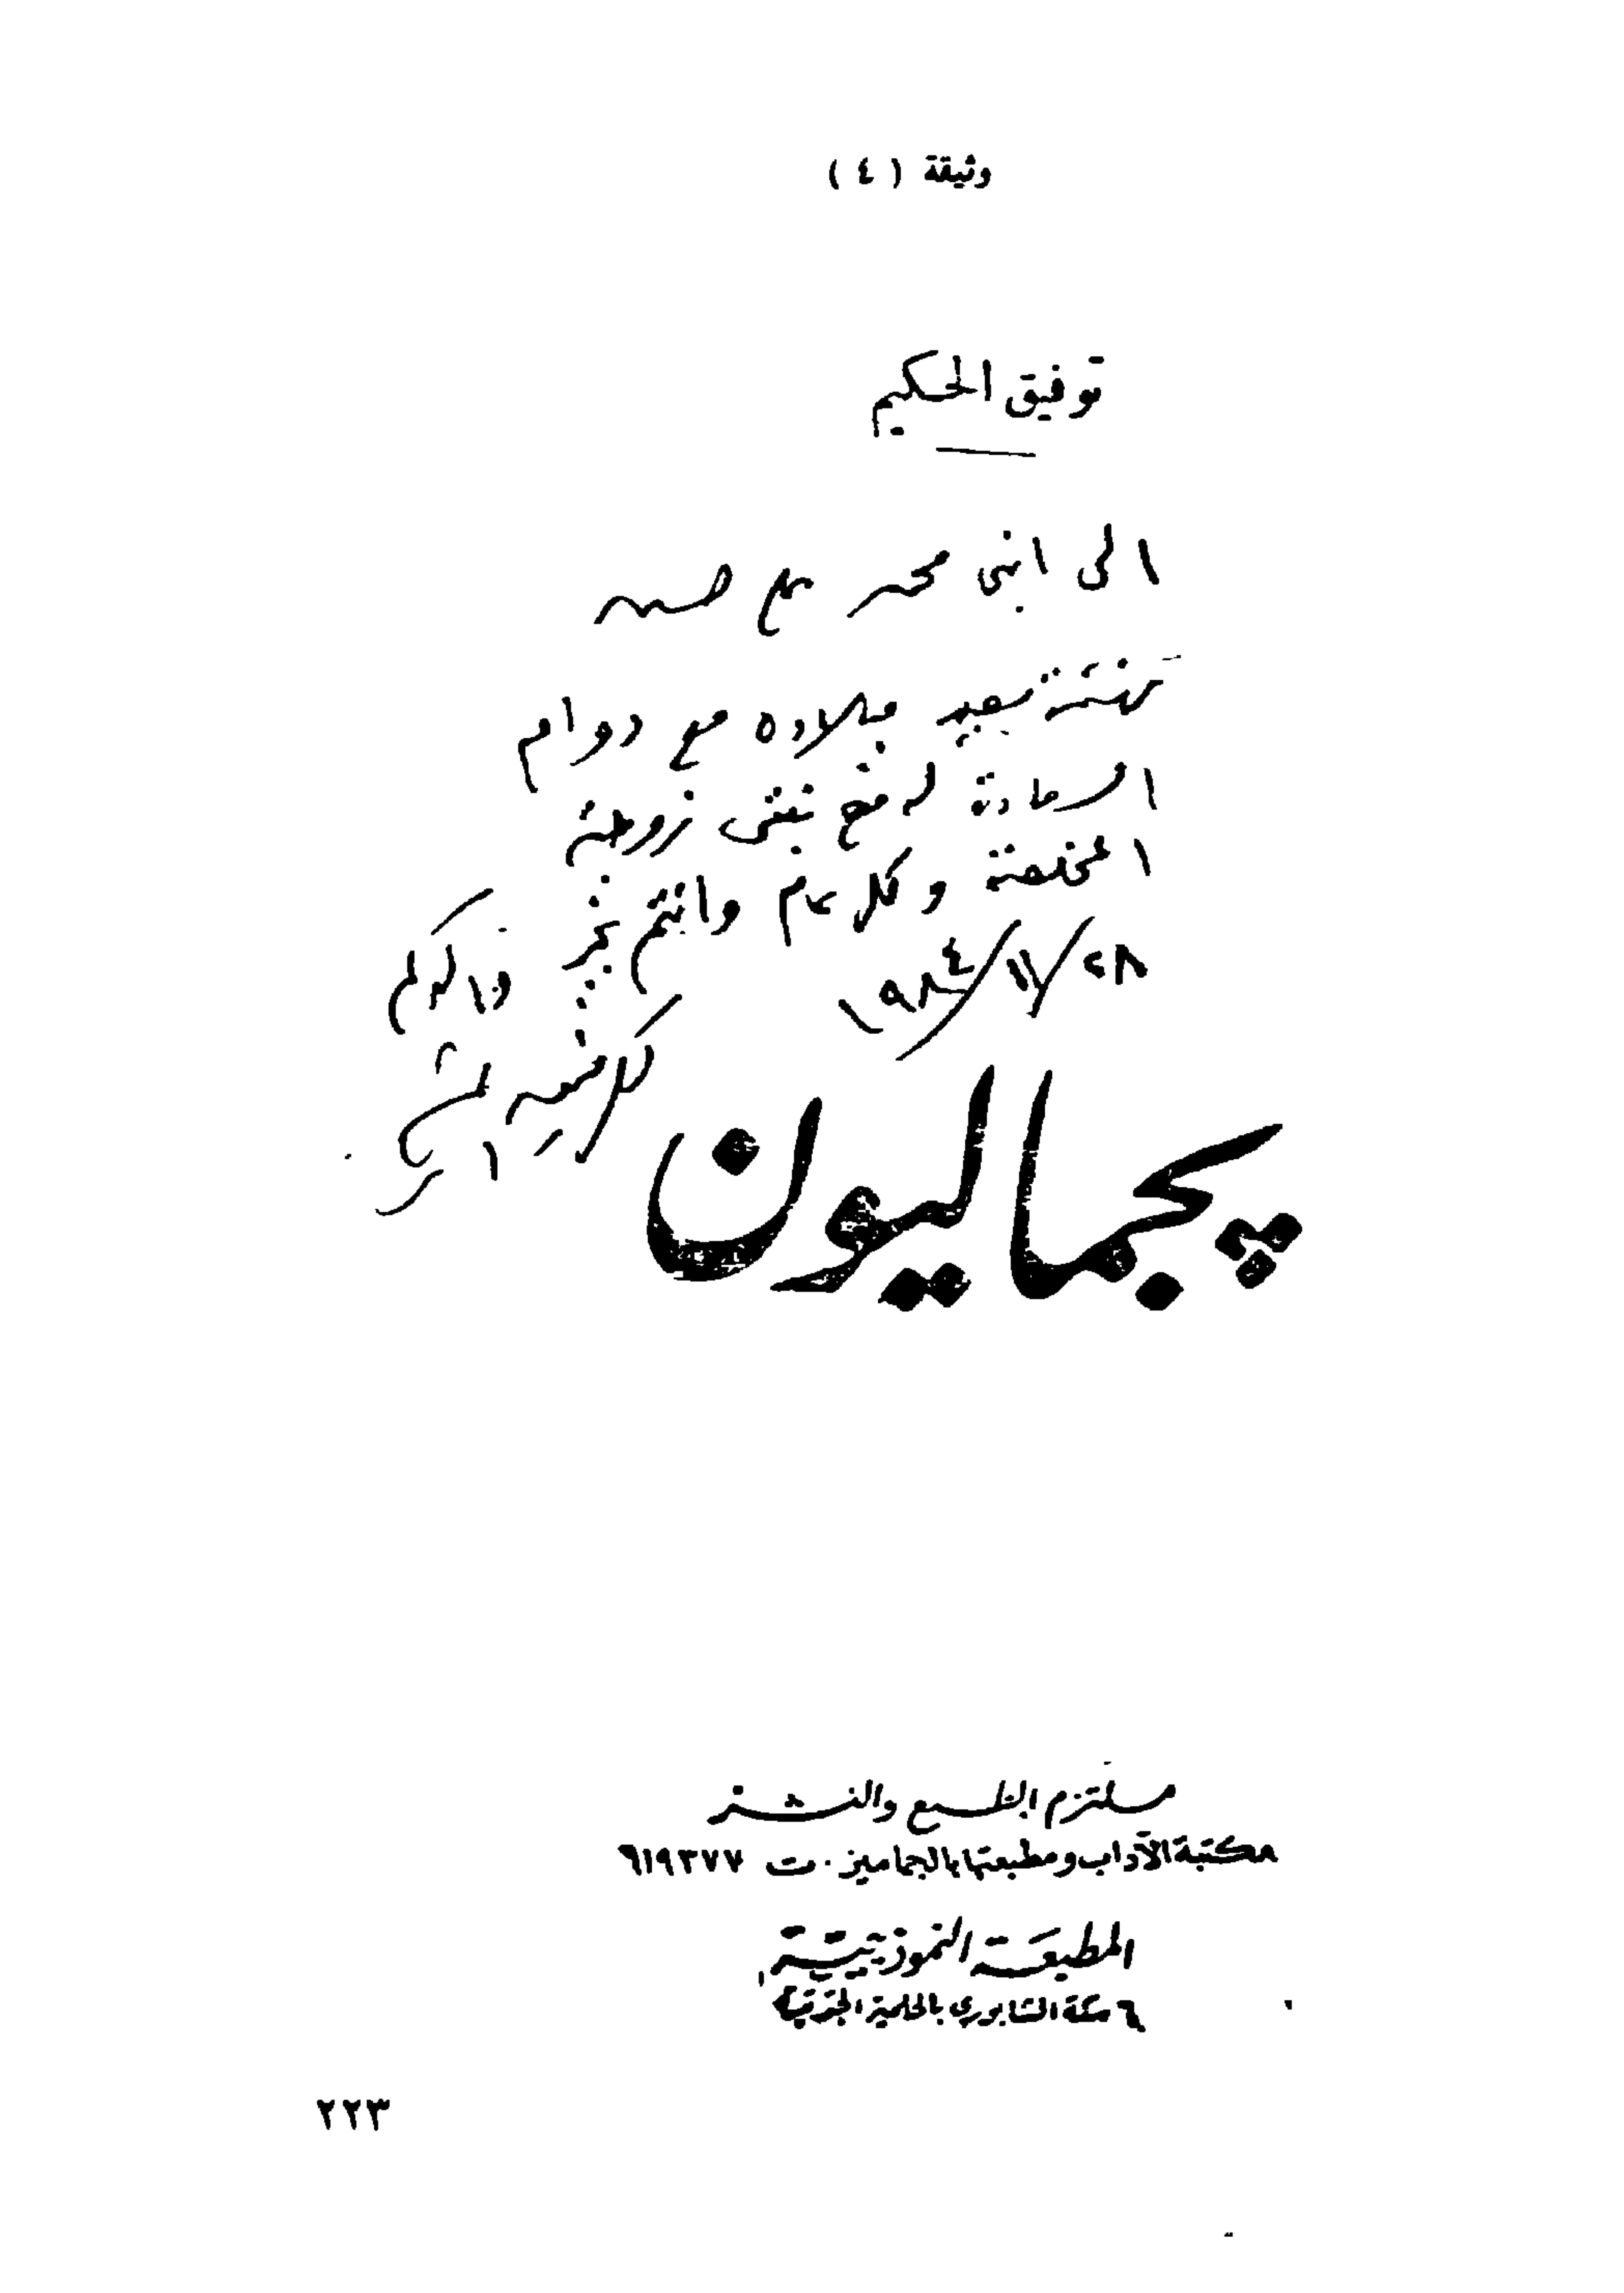 وثيقة ( ٤ )
توفيق الحكيم
الى ابنى محمد على حسن
تهنئة بعيد ميلاده مع دوام
السعادة له مع بنتى زوجته
المخلصة وكل عام وانتم بخير
٢٨/١١/١٩٨٤
توفيق الحكيم
پجماليون
ملتزم الطبع والنشر
مكتبة الآداب ومطبعتها بالجماميز . ت ٩١٩٣٧٧
المطبعة النموذجية
٦ سكة الشابورى بالحلمية الجديدة
٢٢٣